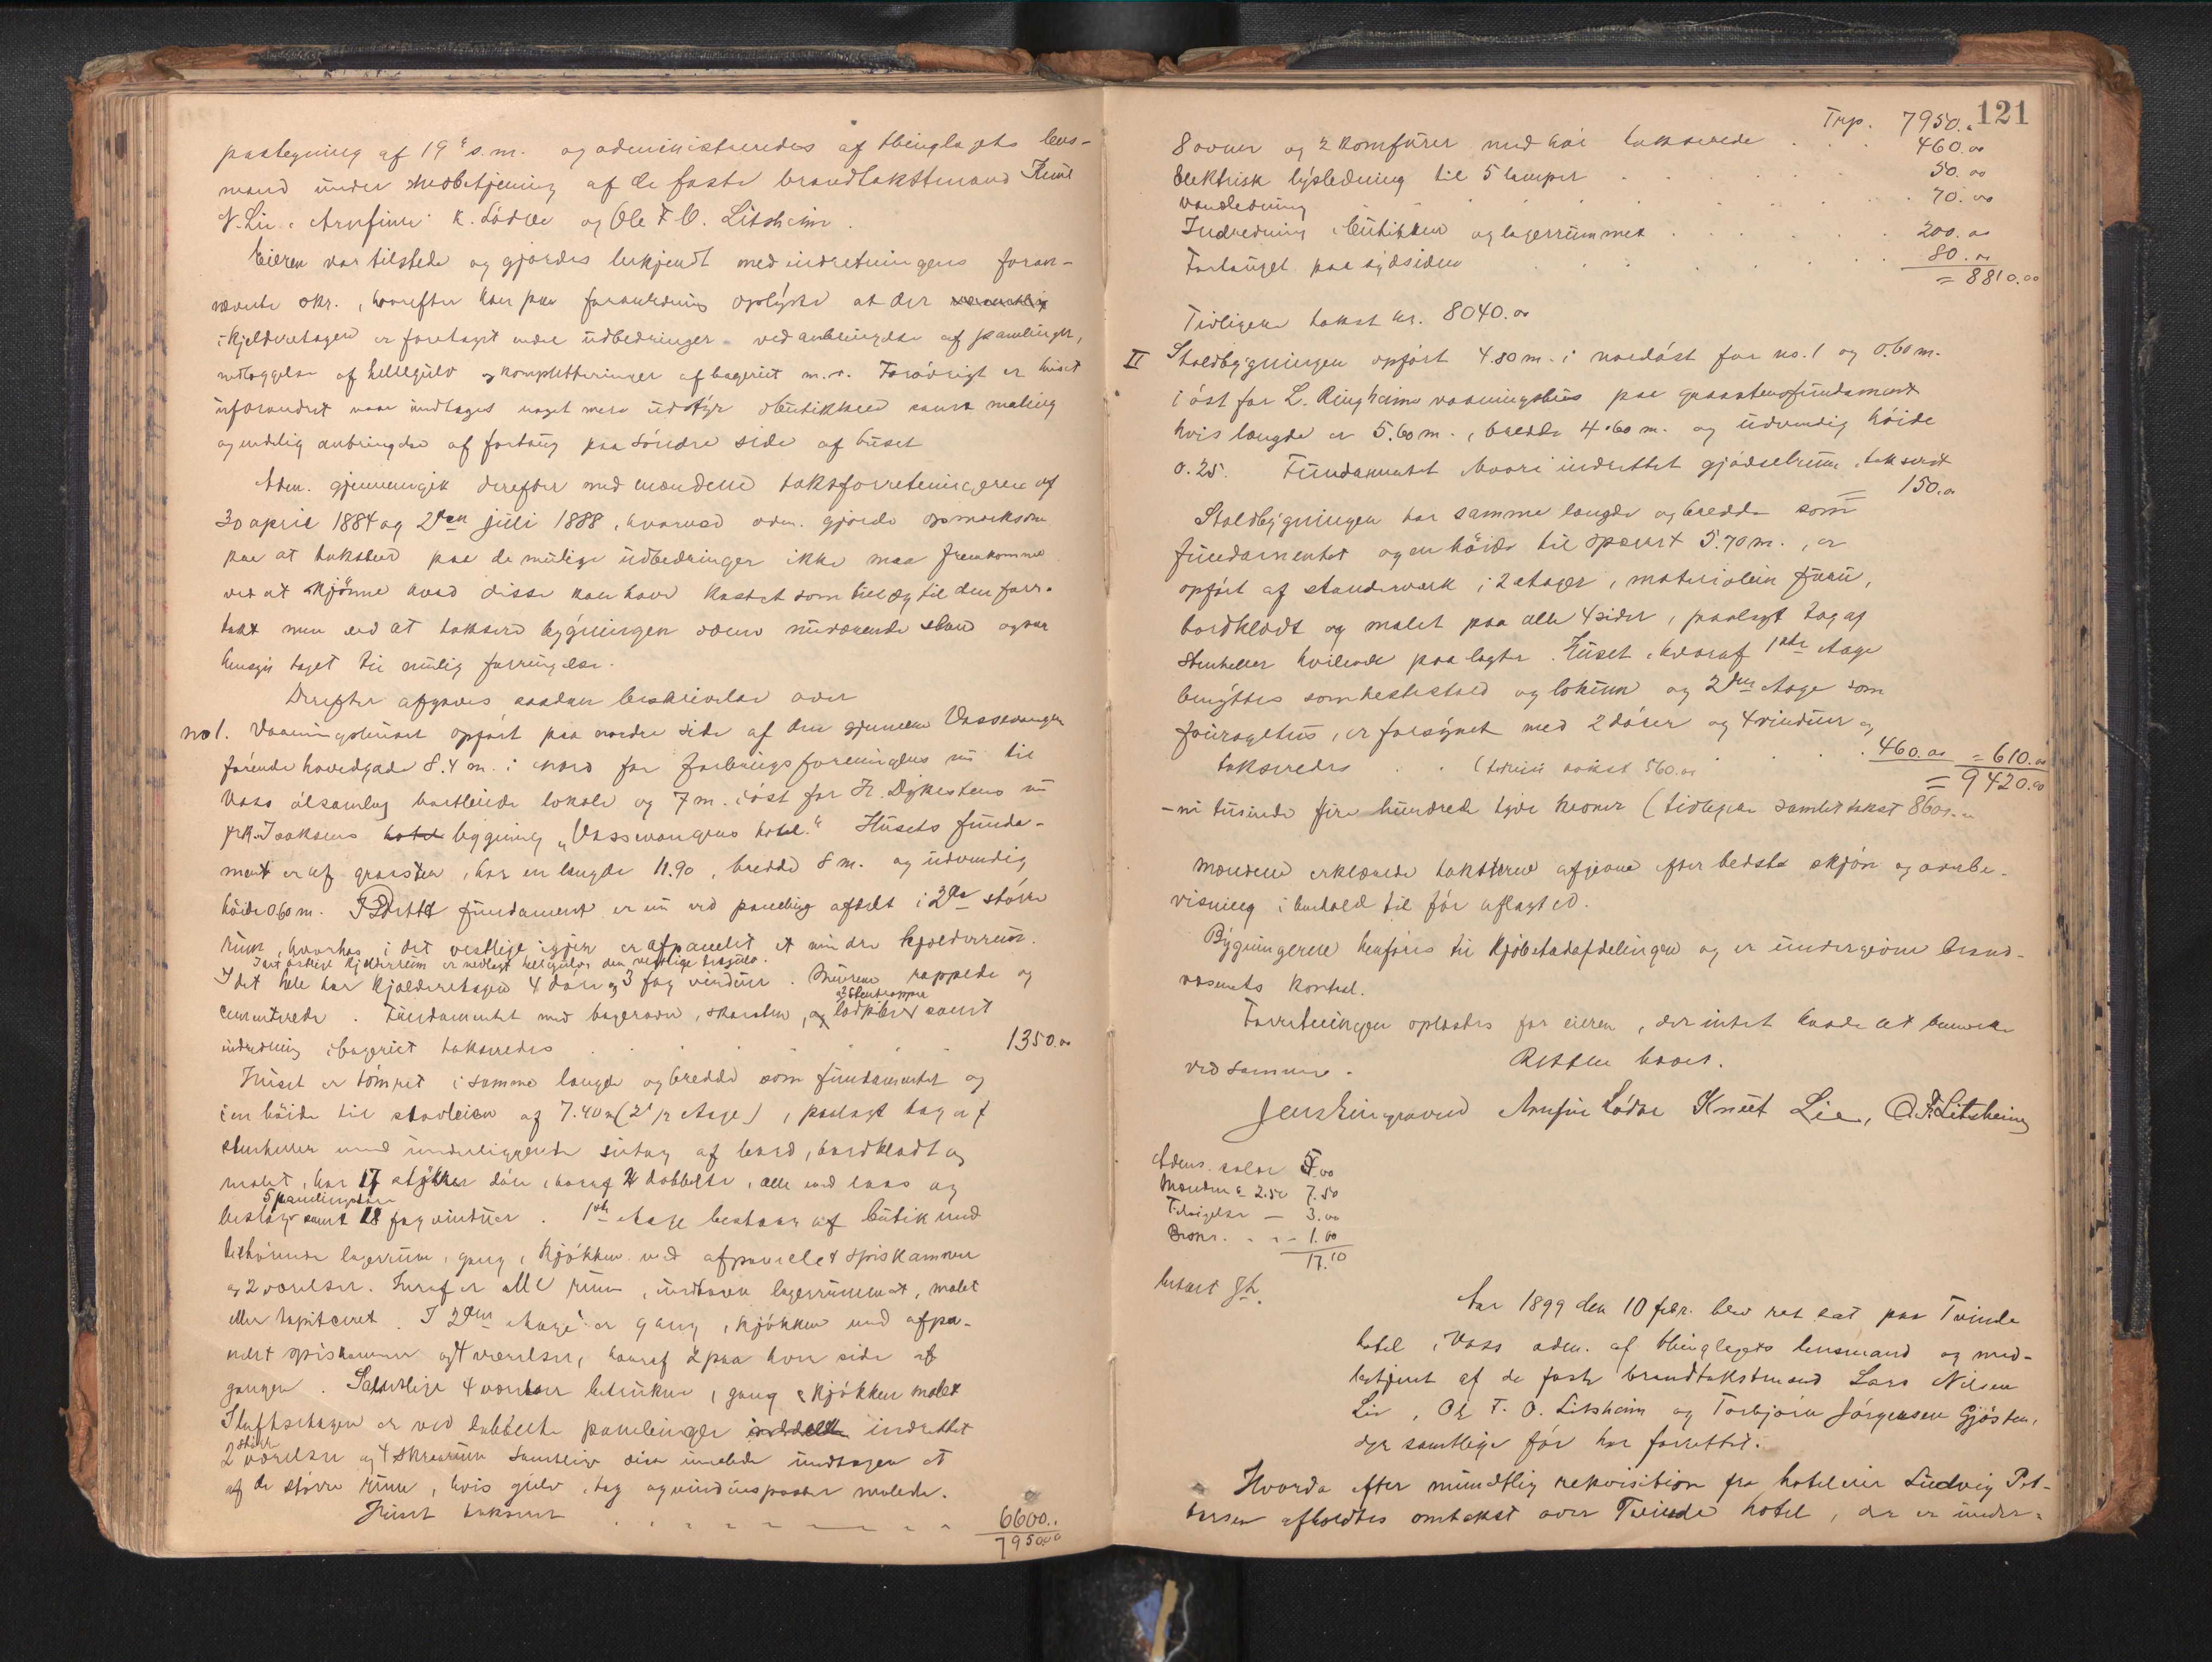 paategning af 19 s.m. og administreredes af thinglagets lens-
mand under medbetjening af de faste brandtakstmænd Knut
N. Lie, Arnfinn K. Lødve og Ole F. O. Litsheim.
Eieren var tilstede og gjordes bekjendt med indretningens foran-
nævnte okr., hvorefter han paa foranledning oplyste at der
i kjelderetagen er foretaget endel udbedringer ved anbringelse af panelinger,
nedlæggelse af hellegulv og kompletteringer af bageriet m.v. Forøvrigt er huset
uforandret naar undtages noget mere udstyr i butikken samt maling
og endelig anbringelse af fortaug paa søndre side af huset
Adm. gjennemgik derefter med mændene takstforretningerne af
30 april 1884 og 2den juli 1888, hvorved adm. gjorde opmærksom
paa at taksten paa de mulige udbedringer ikke maa fremkomme
ved at skjønne hvad disse kan have kostet som tillæg til den forr.
takst men ved at taksere bygningen i dens nuværende stand og var
hensyn taget til mulig forringelse.
Derefter afgaves saadan beskrivelse over
no 1. Vaaningshuset opført paa nordre side af den gjennem Vossevangen
førende hovedgade 8.4 m. i nord for forbrugsforeningens nu til
Voss ølsamlag bortleiede lokale og 7 m. i øst for H. Dykestens nu
frk. Isaksens bygning "Vossevangens hotel." Husets funda-
ment er af graasten, har en længde 11.90, bredde 8 m. og udvendig
høide 0.60 m. I dette fundament er nu ved paneling afdelt i 2de større
rum, hvorhos i det vestlige igjen er afpanelet et mindre kjelderrum.
I det østlige kjelderrum er nedlagt hellegulv, den vestlige trægulv.
I det hele har kjelderetagen 4 døre og 3 fag vinduer. Murene rappede og
cementerede. Fundamentet med bagerovn, skorsten, og 2 stentrapper samt
indredning i bageriet takseredes . . . . . . . 1350.00
Huset er tømret i samme længde og bredde som fundamentet og
i en høide til stavleien af 7.40 m (2 1/2 etage), paalagt tag af
stenheller med underliggende sutag af bord, bordklædt og
malet, har 17 stykker døre, hvoraf 2 dobbelte, alle med laas og
5 panelingsdøre
beslag samt 18 fag vinduer. 1ste etage bestaar af butik med
tilhørende lagerrum, gang, kjøkken med afpanelet spiskammer
og 2 værelser. Heraf er alle rum, undtagen lagerrummet, malet
eller tapitceret. I 2den etage er gang, kjøkken med afpa-
nelet spiskammer og 4 værelser, hvoraf 2 paa hver side af
gangen. Samtlige 4 værelser betrukne, gang & kjøkken malet
I loftsetagen er ved dobbelte panelinger indrettet
2 større værelser og 4 skraarum samtlige disse umalede undtagen et
af de større rum, hvis gulv, tag og vinduesposter malede.
Huset takseret . . . . . . . . 6600..
7950.00
121
Trp. 7950.
8 ovner og 2 komfurer med rør takserede . . . 460.00
Elektrisk lysledning til 5 lamper . . . . . 50.00
Vandledning . . . . . . . 70.00
Indredning i butikken og lagerrummet . . . . . 200.00
Fortauget paa sydsiden . . . . . 80.00
= 8810.00
Tidligere takst kr. 8040.00
II Staldbygningen opført 4.80 m. i nordøst for no. 1 og 0.60 m.
i øst for L. Ringheims vaaningshus paa graastensfundament
hvis længde er 5.60 m., bredde 4.60 m. og udvendig høide
0.25. Fundamentet hvori indrettet gjødselrum, takseret
= 150.00
Staldbygningen har samme længde og bredde som
fundamentet og en høide til spærret 5.70 m., er
opført af standerværk i 2 etager, materialein furu,
bordklædt og malet paa alle 4 sider, paalagt tag af
stenheller hvilende paa lægter. Huset, hvoraf 1ste etage
benyttes som hestestald og lokum og 2den etage som
fouragehus, er forsynet med 2 døre og 4 vinduer og
takseredes . . . (forrige takst 560.00 . . . 460.00 = 610.00
= 9420.00
- ni tusinde fire hundrede tyve kroner (tidligere samlet takst 8600..
Mændene erklærede taksterne afgivne efter bedste skjøn og overbe-
visning i henhold til før aflagt ed.
Bygningerne henføres til kjøbstadafdelingen og er undergivne brand-
væsenets kontrol.
Forretningen oplæstes for eieren, der intet havde at bemærke
ved samme. Retten hævet.
Arnfin Lødve Knut Lie, O. F. Litsheim
Adms. salær 5.00
Mændene à 2.50 7.50
Tilsigelse — 3.00
1.60
17.10
betalt
Aar 1899 den 10 febr. blev ret sat paa Tvinde
hotel i Voss adm. af thinglagets lensmand og med-
betjent af de faste brandtakstmænd Lars Nilsen
Lie, Ole F. O. Litsheim og Torbjørn Jørgensen Gjøstein,
der samtlige før har forrettet.
Hvorda efter mundtlig rekvisition fra hoteleier Ludvig Pet-
tersen afholdtes omtakst over Tvinde hotel, der er under-